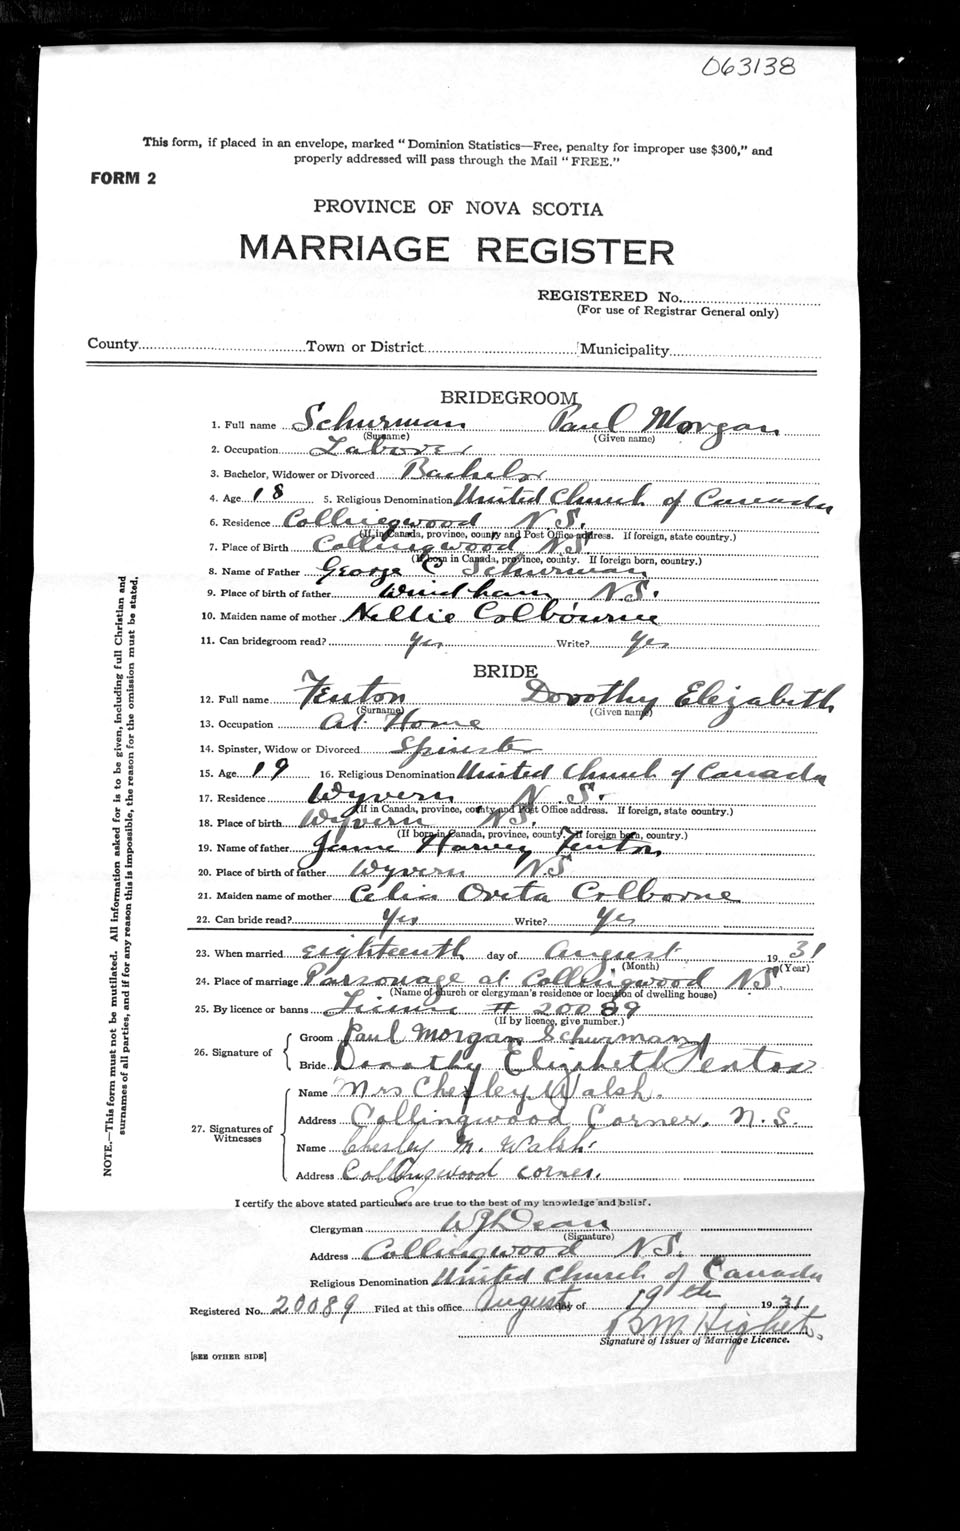 063138
This form, if placed in an envelope, marked "Dominion Statistics—Free, penalty for improper use $300," and
properly addressed will pass through the Mail "FREE."
FORM 2
PROVINCE OF NOVA SCOTIA
MARRIAGE REGISTER
REGISTERED No.
(For use of Registrar General only)
County Town or District Municipality
BRIDEGROOM
1. Full name Schurman Paul Morgan
(Surname) (Given name)
2. Occupation Laborer
3. Bachelor, Widower or Divorced Bachelor
4. Age 18 5. Religious Denomination United Church of Canada
6. Residence Collingwood N.S.
(If in Canada, province, county and Post Office address. If foreign, state country.)
7. Place of Birth Collingwood N.S
(If born in Canada, province, county. If foreign born, country.)
8. Name of Father George C Schurman
9. Place of birth of father Windham N.S.
10. Maiden name of mother Nellie Colbourne
11. Can bridegroom read? Yes Write? Yes
BRIDE
12. Full name Fenton Dorothy Elizabeth
(Surname) (Given name)
13. Occupation At Home
14. Spinster, Widow or Divorced Spinster
15. Age 19 16. Religious Denomination United Church of Canada
17. Residence Wyvern N.S.
(If in Canada, province, county and Post Office address. If foreign, state country.)
18. Place of birth Wyvern N.S.
(If born in Canada, province, county. If foreign born, country.)
19. Name of father Harvey Fenton
20. Place of birth of father Wyvern NS
21. Maiden name of mother Celia Oreta Colborne
22. Can bride read? Yes Write? Yes
23. When married eighteenth day of August 1931
(Month) (Year)
24. Place of marriage Parsonage at Collingwood NS.
(Name of church or clergyman's residence or location of dwelling house)
25. By licence or banns License # 20089
(If by licence, give number.)
26. Signature of Groom Paul Morgan Schurman
Bride Dorothy Elizabeth Fenton
27. Signatures of Witnesses Name Mrs Chesley Walsh.
Address Collingwood Corner, N.S.
Name Chesley M. Walsh
Address Collingwood corner.
I certify the above stated particulars are true to the best of my knowledge and belief.
Clergyman Dean
(Signature)
Address Collingwood N.S.
Religious Denomination United Church of Canada
Registered No. 20089 Filed at this office August day of 19th 1931
Signature of Issuer of Marriage Licence.
[SEE OTHER SIDE]
NOTE.—This form must not be mutilated. All information asked for is to be given, including full Christian and
surnames of all parties, and if for any reason this is impossible, the reason for the omission must be stated.